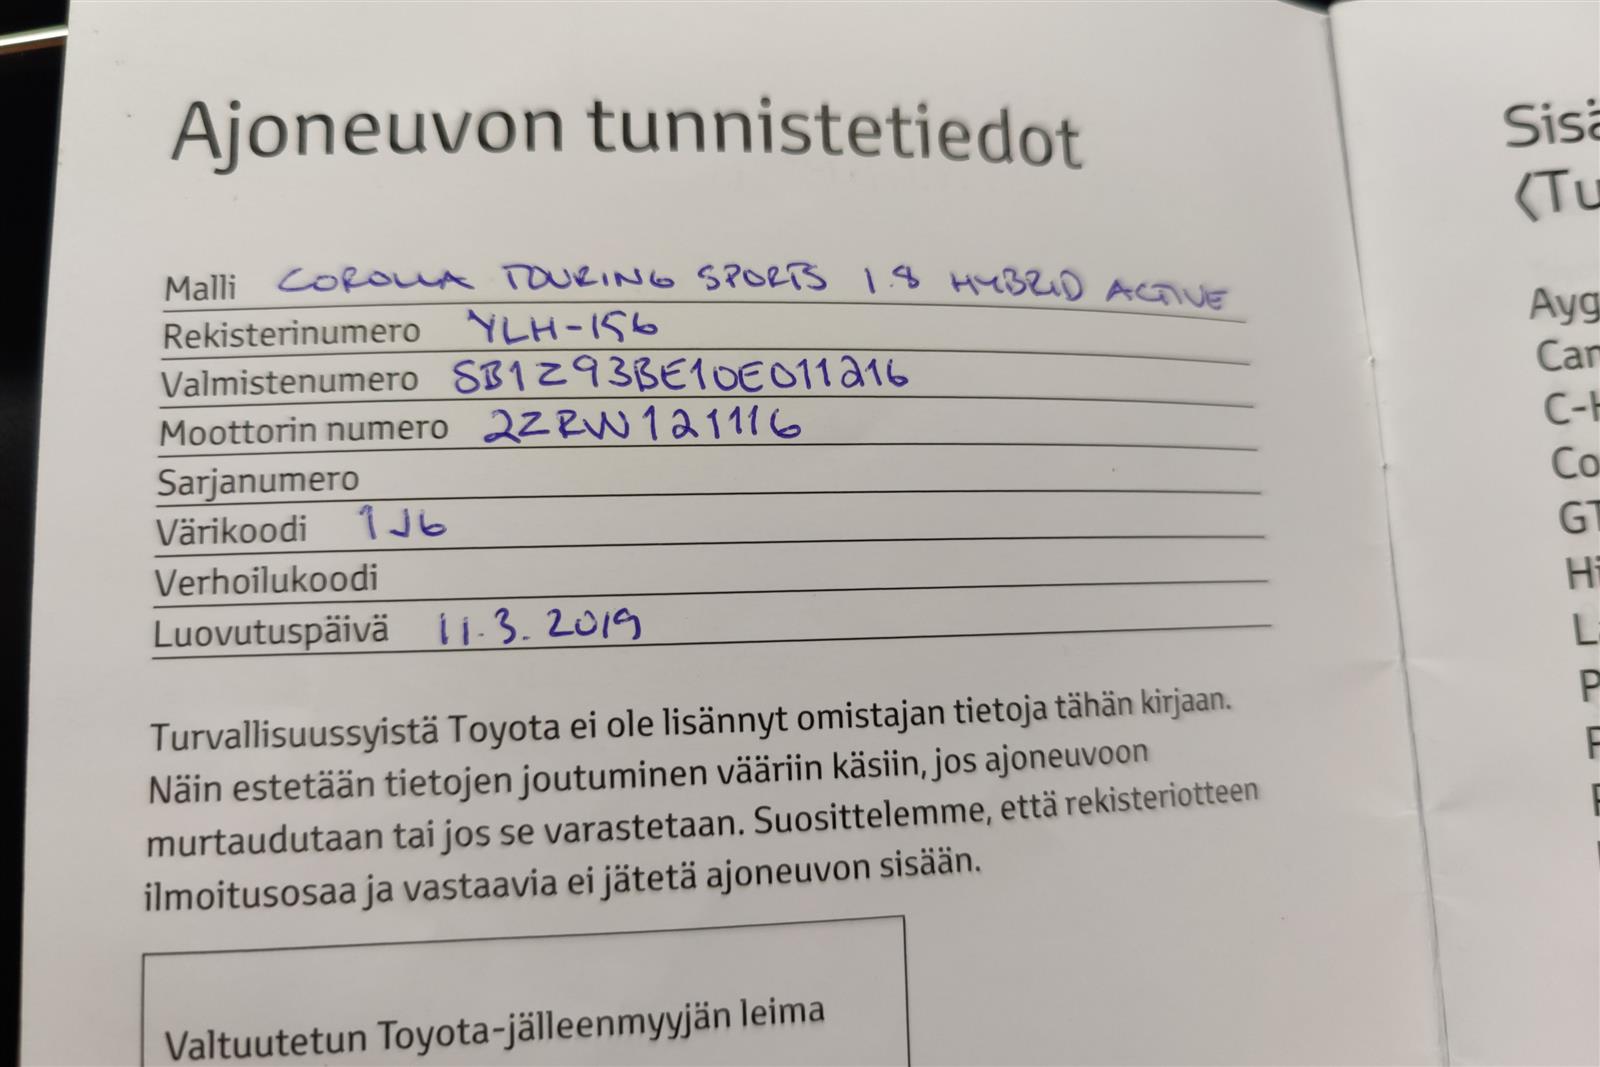 Ajoneuvon tunnistetiedot
Malli COROLLA TOURING SPORTS 1.8 HYBRID ACTIVE
Rekisterinumero YLH-156
Valmistenumero SB1Z93BE10E011216
Moottorin numero 2ZRW121116
Sarjanumero
Värikoodi 1J6
Verhoilukoodi
Luovutuspäivä 11.3.2019
Turvallisuussyistä Toyota ei ole lisännyt omistajan tietoja tähän kirjaan.
Näin estetään tietojen joutuminen vääriin käsiin, jos ajoneuvoon
murtaudutaan tai jos se varastetaan. Suosittelemme, että rekisteriotteen
ilmoitusosaa ja vastaavia ei jätetä ajoneuvon sisään.
Valtuutetun Toyota-jälleenmyyjän leima